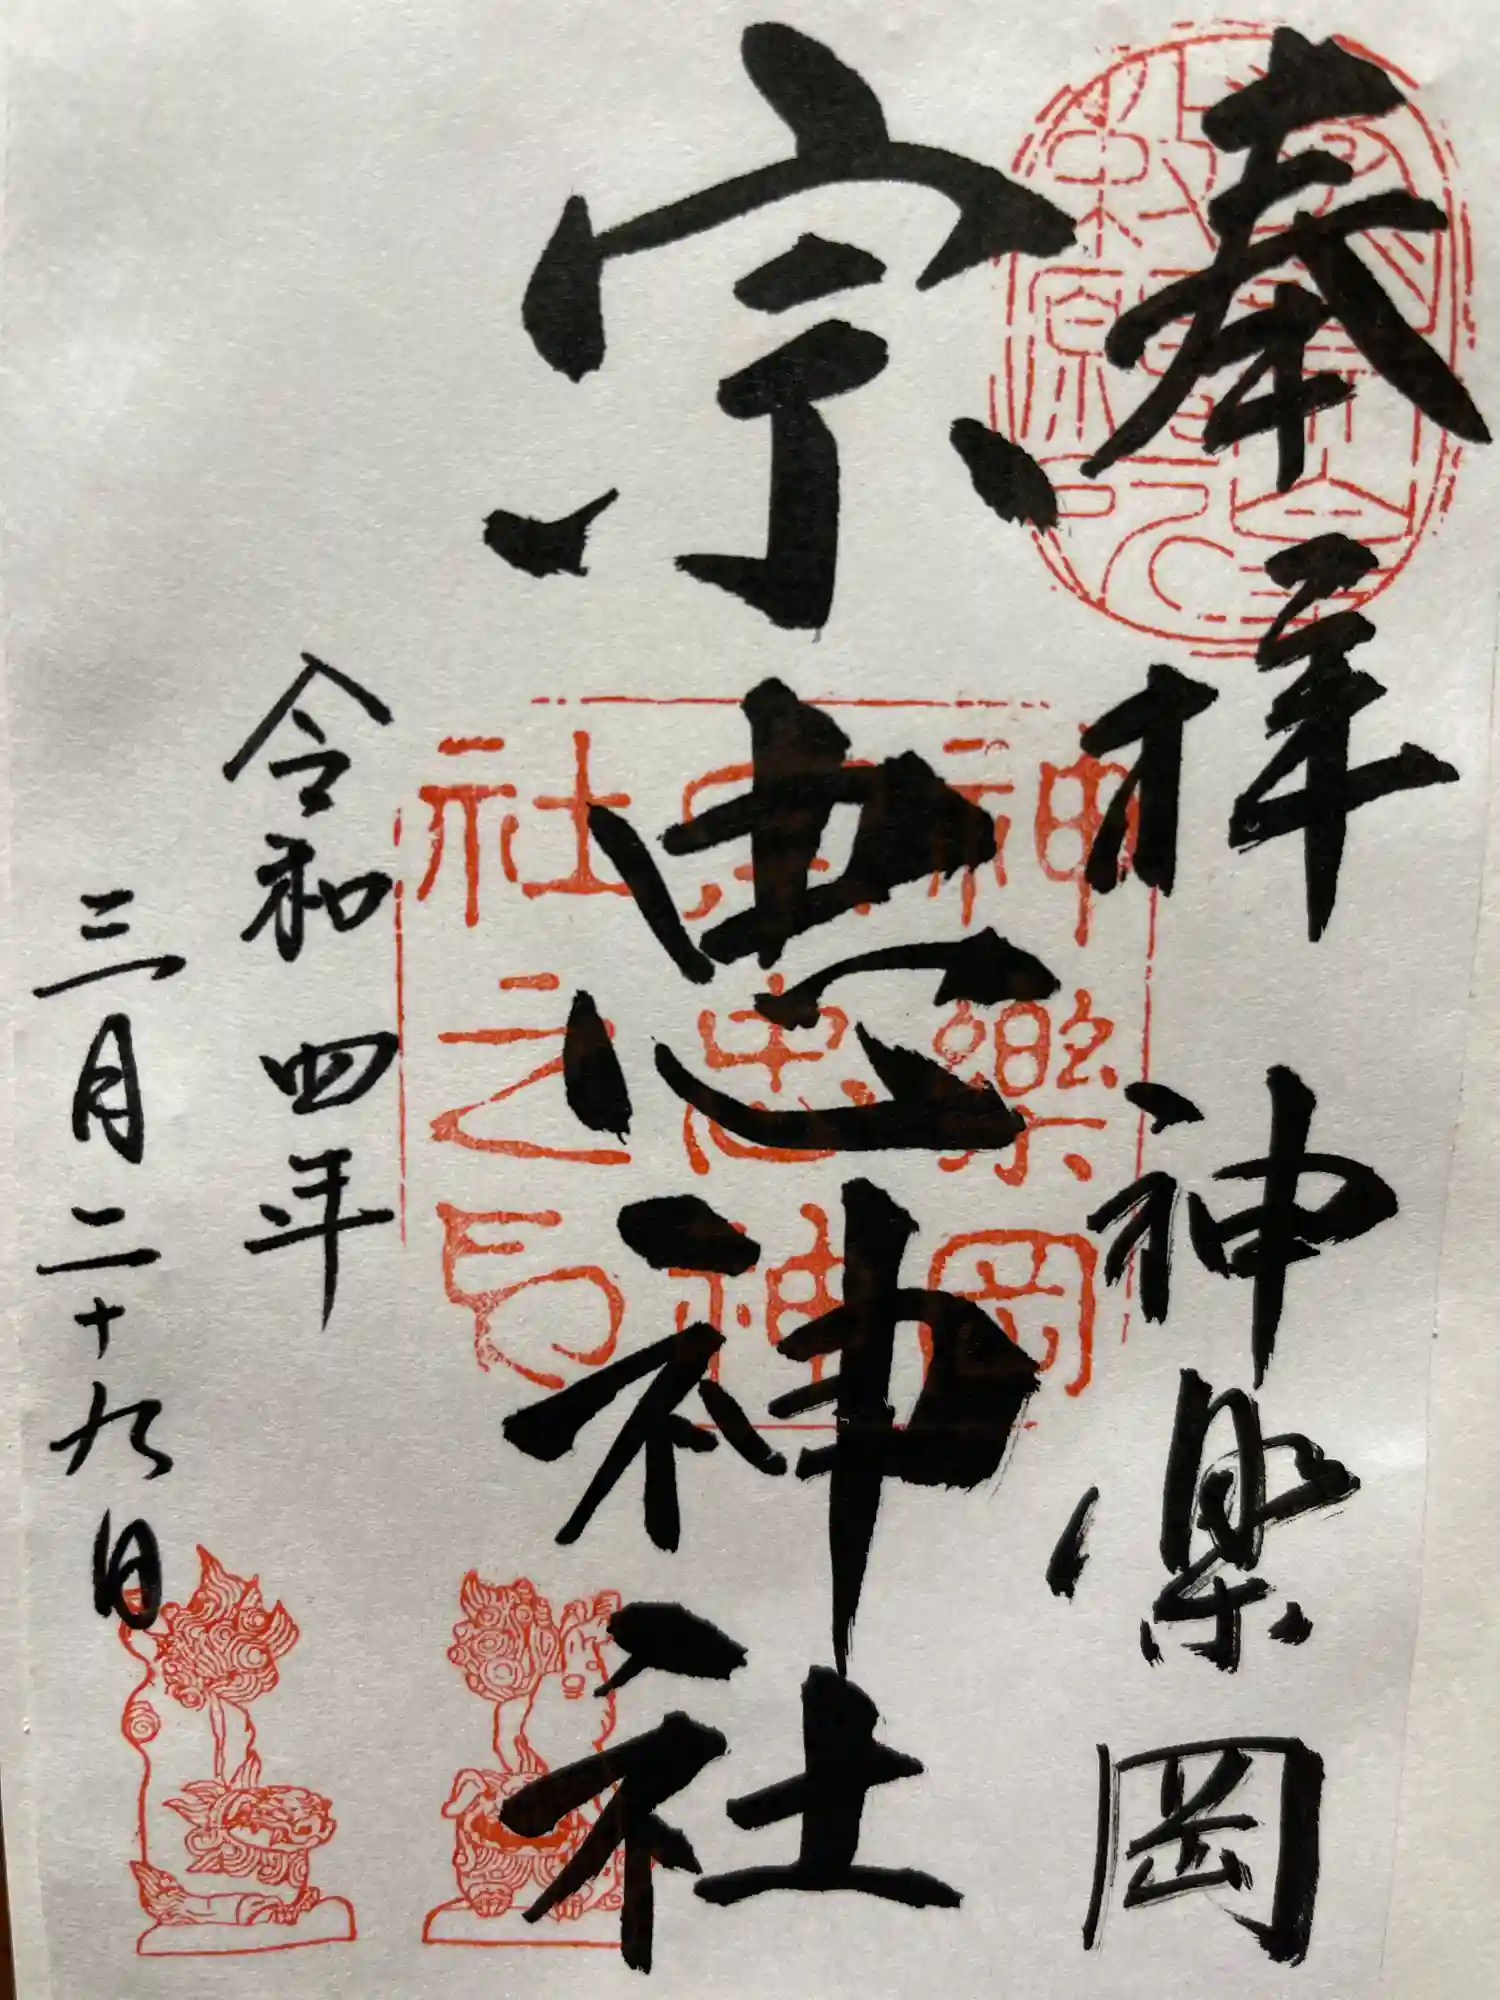 奉拝 神楽岡
宗忠神社
令和四年
三月二十九日
神楽岡
宗忠神
社之印